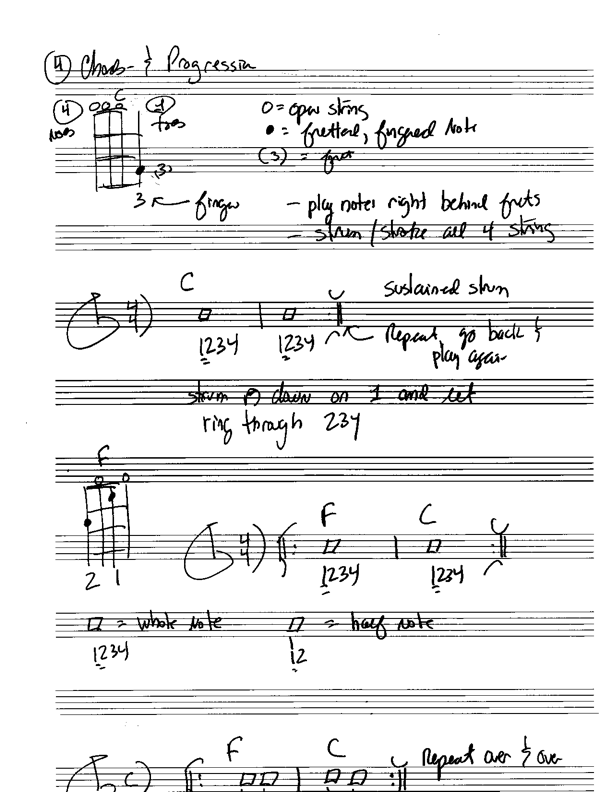 ④ Chords & Progression
C
④ ooo ①
(3)
3 ← finger
O = open string
● = fretted, fingered Note
(3) = fret
- play notes right behind frets
- strum / stroke all 4 string
C
Sustained strum
4 4
1234 1234
Repeat, go back &
play again
strum down on 1 and let
ring through 234
F
o o
2 1
4 4
F C
1234 1234
= whole note = half note
1234 12
F C
Repeat over & over
C